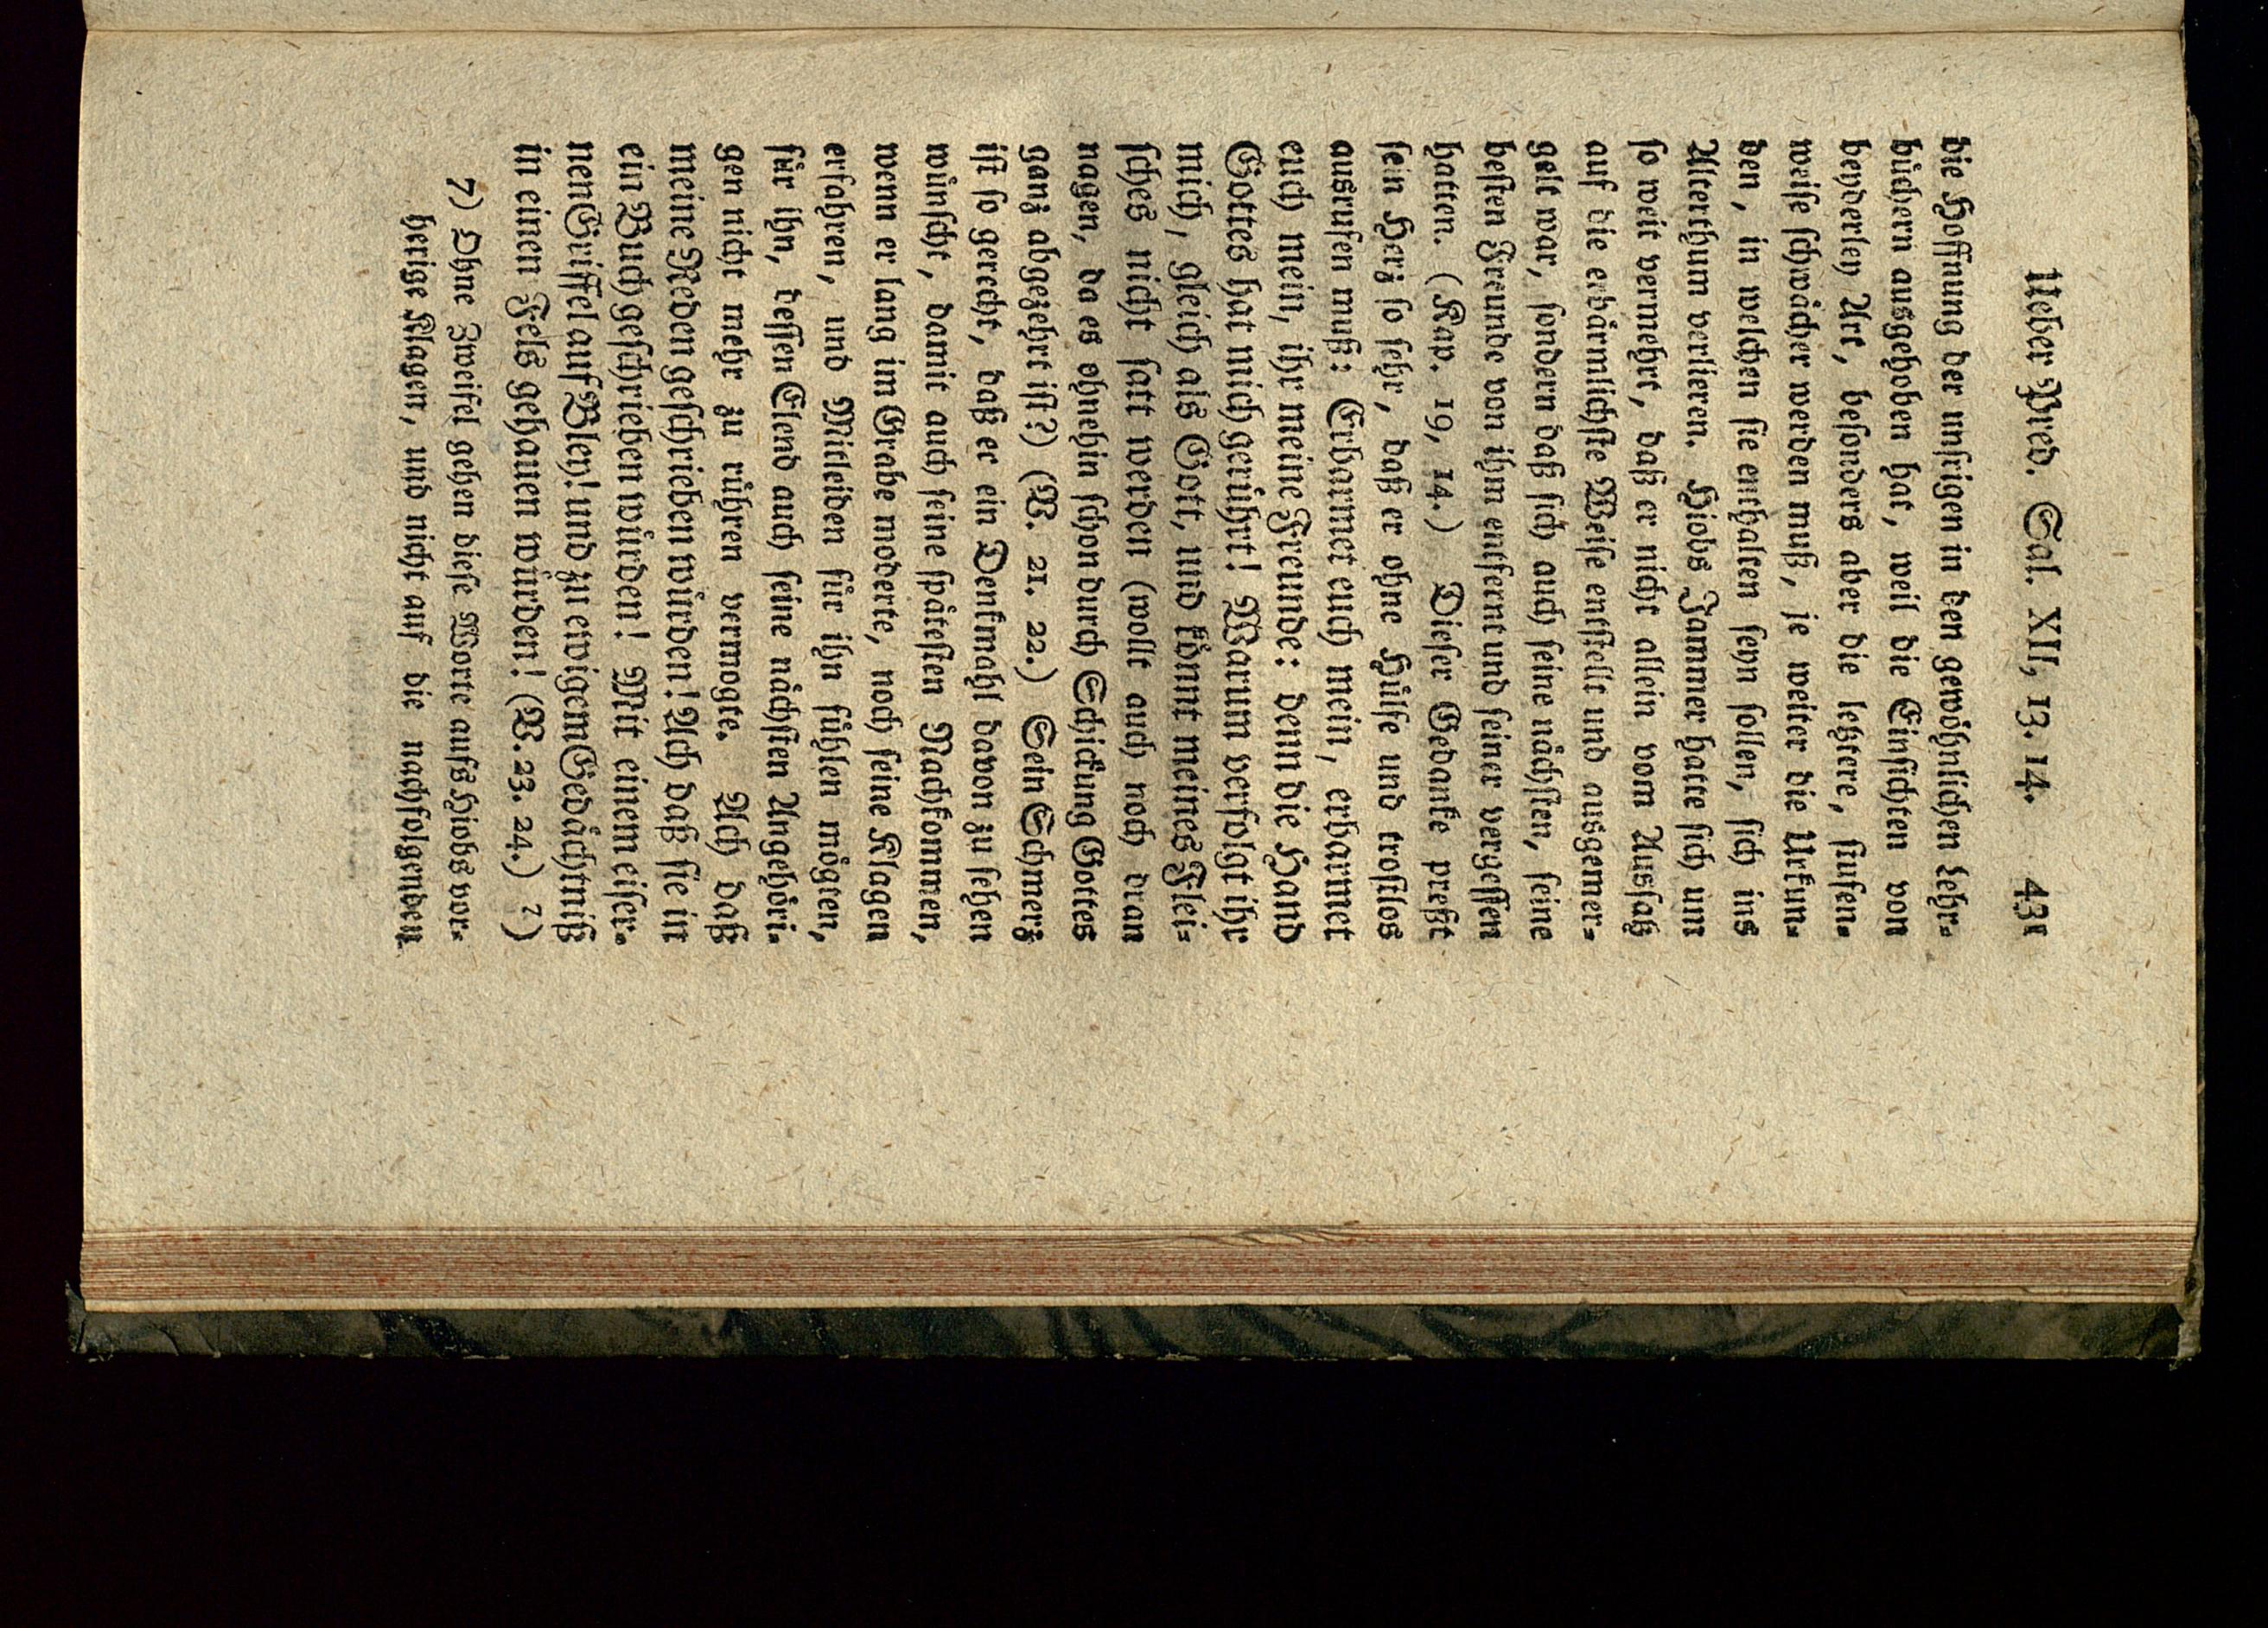 Ueber Pred. Sal. XII, 13. 14. 431
die Hoffnung der unsrigen in den gewöhnlichen Lehr-
büchern ausgehoben hat, weil die Einsichten von
beyderley Art, besonders aber die letztere, stufen-
weise schwächer werden muß, je weiter die Urkun-
den, in welchen sie enthalten seyn sollen, sich ins
Alterthum verlieren. Hiobs Jammer hatte sich um
so weit vermehrt, daß er nicht allein vom Aussatz
auf die erbärmlichste Weise entstellt und ausgemer-
gelt war, sondern daß sich auch seine nächsten, seine
besten Freunde von ihm entfernt und seiner vergessen
hatten. (Kap. 19, 14.) Dieser Gedanke preßt
sein Herz so sehr, daß er ohne Hülfe und trostlos
ausrufen muß: Erbarmet euch mein, erbarmet
euch mein, ihr meine Freunde: denn die Hand
Gottes hat mich gerührt! Warum verfolgt ihr
mich, gleich als Gott, und könnt meines Flei-
sches nicht satt werden (wollt auch noch dran
nagen, da es ohnehin schon durch Schickung Gottes
ganz abgezehrt ist?) (V. 21. 22.) Sein Schmerz
ist so gerecht, daß er ein Denkmahl davon zu sehen
wünscht, damit auch seine spätesten Nachkommen,
wenn er lang im Grabe moderte, noch seine Klagen
erfahren, und Mitleiden für ihn fühlen mögten,
für ihn, dessen Elend auch seine nächsten Angehöri-
gen nicht mehr zu rühren vermogte. Ach daß
meine Reden geschrieben würden! Ach daß sie in
ein Buch geschrieben würden! Mit einem eiser-
nen Griffel auf Bley! und zu ewigem Gedächtniß
in einen Fels gehauen würden! (V. 23. 24.) 7)
7) Ohne Zweifel gehen diese Worte aufs Hiobs vor-
herige Klagen, und nicht auf die nachfolgenden